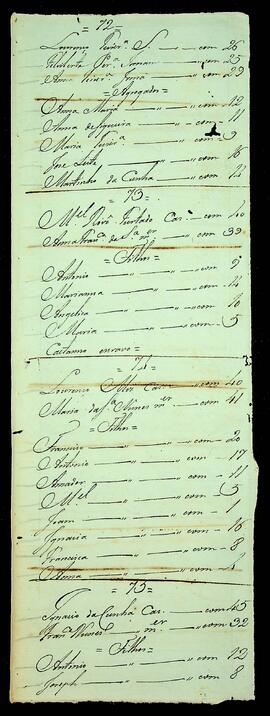 = 72 =
Lourenço Xavier S. — com 26
Felisberta Per.ª Irman — com 25
Anna Xavier Irmã — com 29
= Agregados =
Anna Maria — " — com 12
Anna de Siqueira — " — com 11
Maria — " — com 9
Joze Leite — " — com 16
Martinho da Cunha — " — com 12
= 73 =
M.el Roiz Furtado Caz. — com 40
Anna Fran.ca da S.ª m.er — com 39
= Filhos =
Antonio — " — com 9
Marianna — " — com 14
Angelica — " — com 10
Maria — " — com 5
Caetanno escravo — "
= 74 =
Lourenço Roiz Caz. — com 40
Maria da S.ª Nunes m.er — com 41
= Filhos =
Francisco — " — com 20
Antonio — " — com 17
Amador — " — com 11
M.el — " — com 5
Joam — " — com 1
Ignacia — " — com 16
Francisca — " — com 8
Anna — " — com 4
= 75 =
Ignacio da Cunha Caz. — com 45
Fran.ca Nunes m.er — " com 32
= Filhos =
Antonio — " — com 12
Joseph — " — com 8